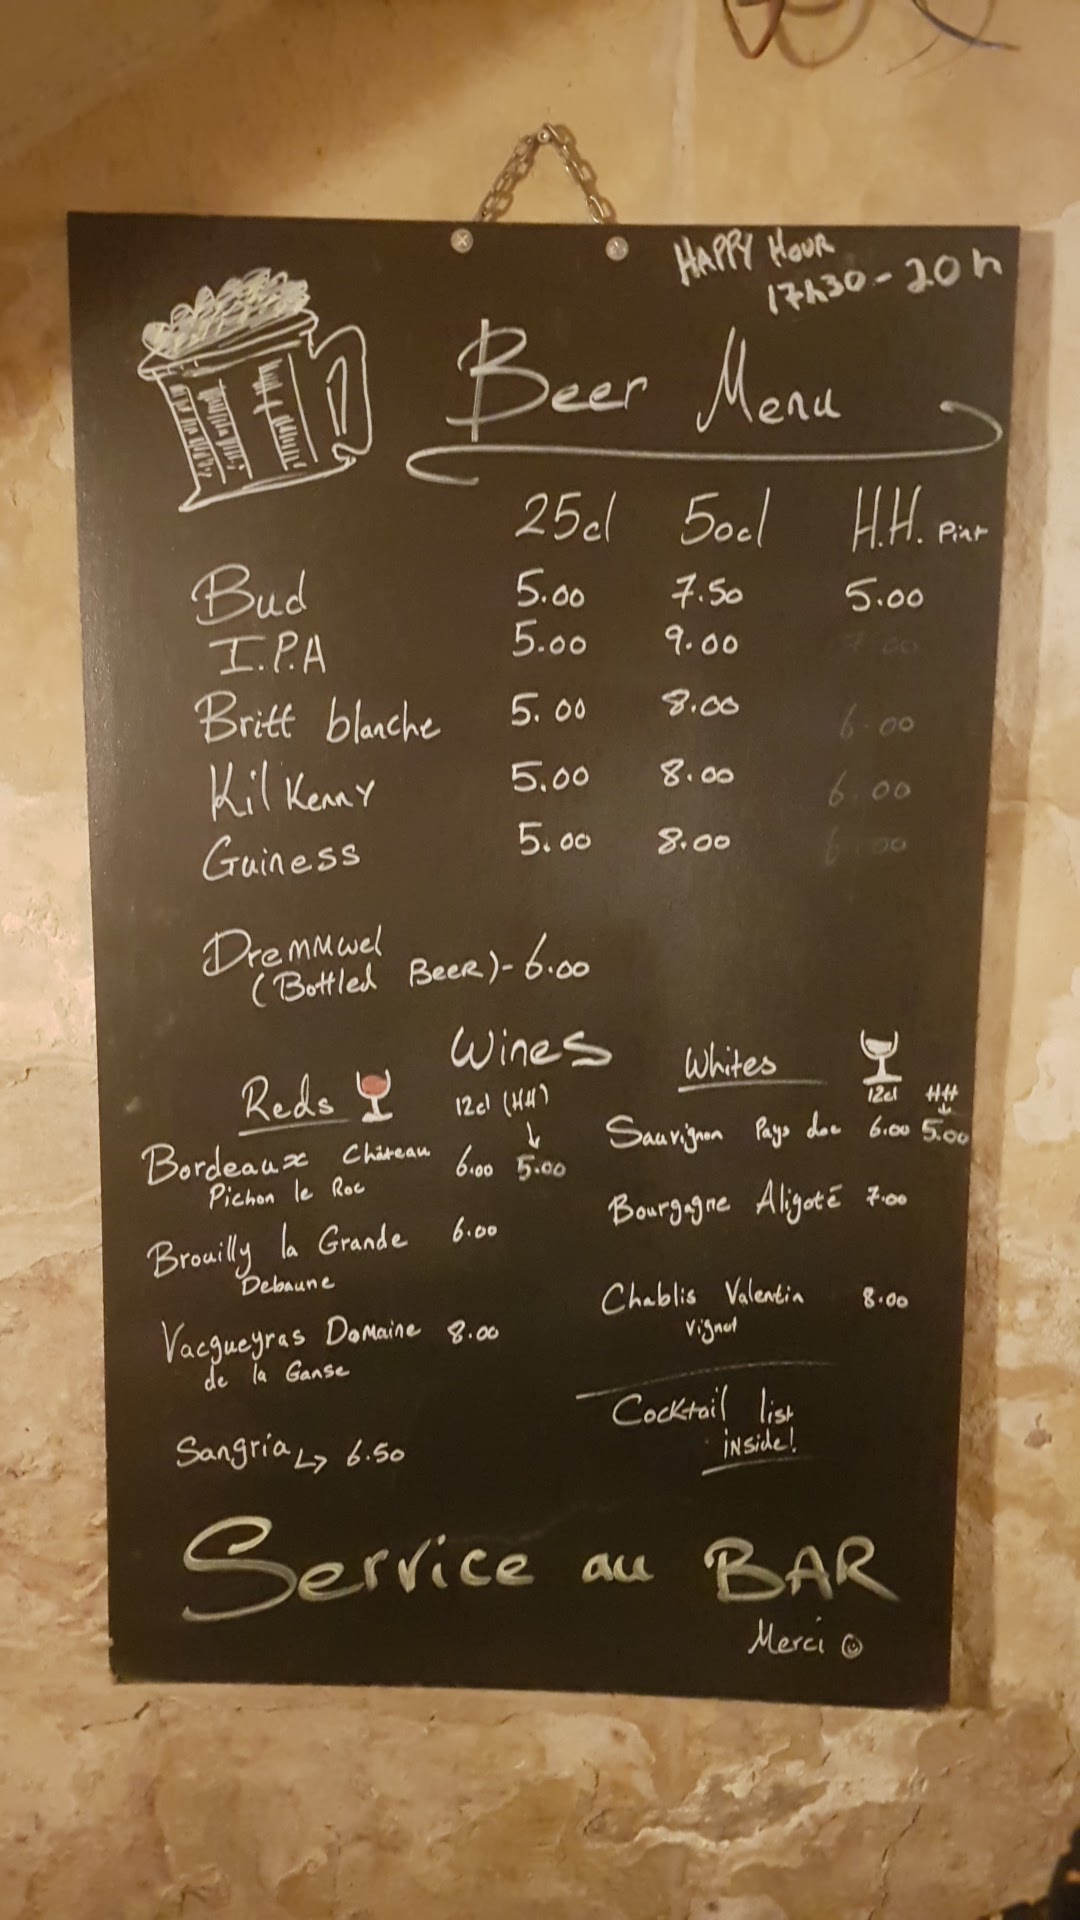 HAPPY HOUR
17h30 - 20h
Beer Menu
25cl 50cl H.H. Pint
Bud 5.00 7.50 5.00
I.P.A 5.00 9.00 7.00
Britt blanche 5.00 8.00 6.00
Kilkenny 5.00 8.00 6.00
Guiness 5.00 8.00 6.00
Dremmwel
(Bottled Beer) - 6.00
Wines
Reds
12cl (HH)
Bordeaux Château 6.00 5.00
Pichon le Roc
Brouilly la Grande 6.00
Debaune
Vacgueyras Domaine 8.00
de la Ganse
Sangria ↳ 6.50
Whites
12cl HH
Sauvignon Pays doc 6.00 5.00
Bourgagne Aligoté 7.00
Chablis Valentin 8.00
Vignot
Cocktail list
inside!
Service au BAR
Merci ☺